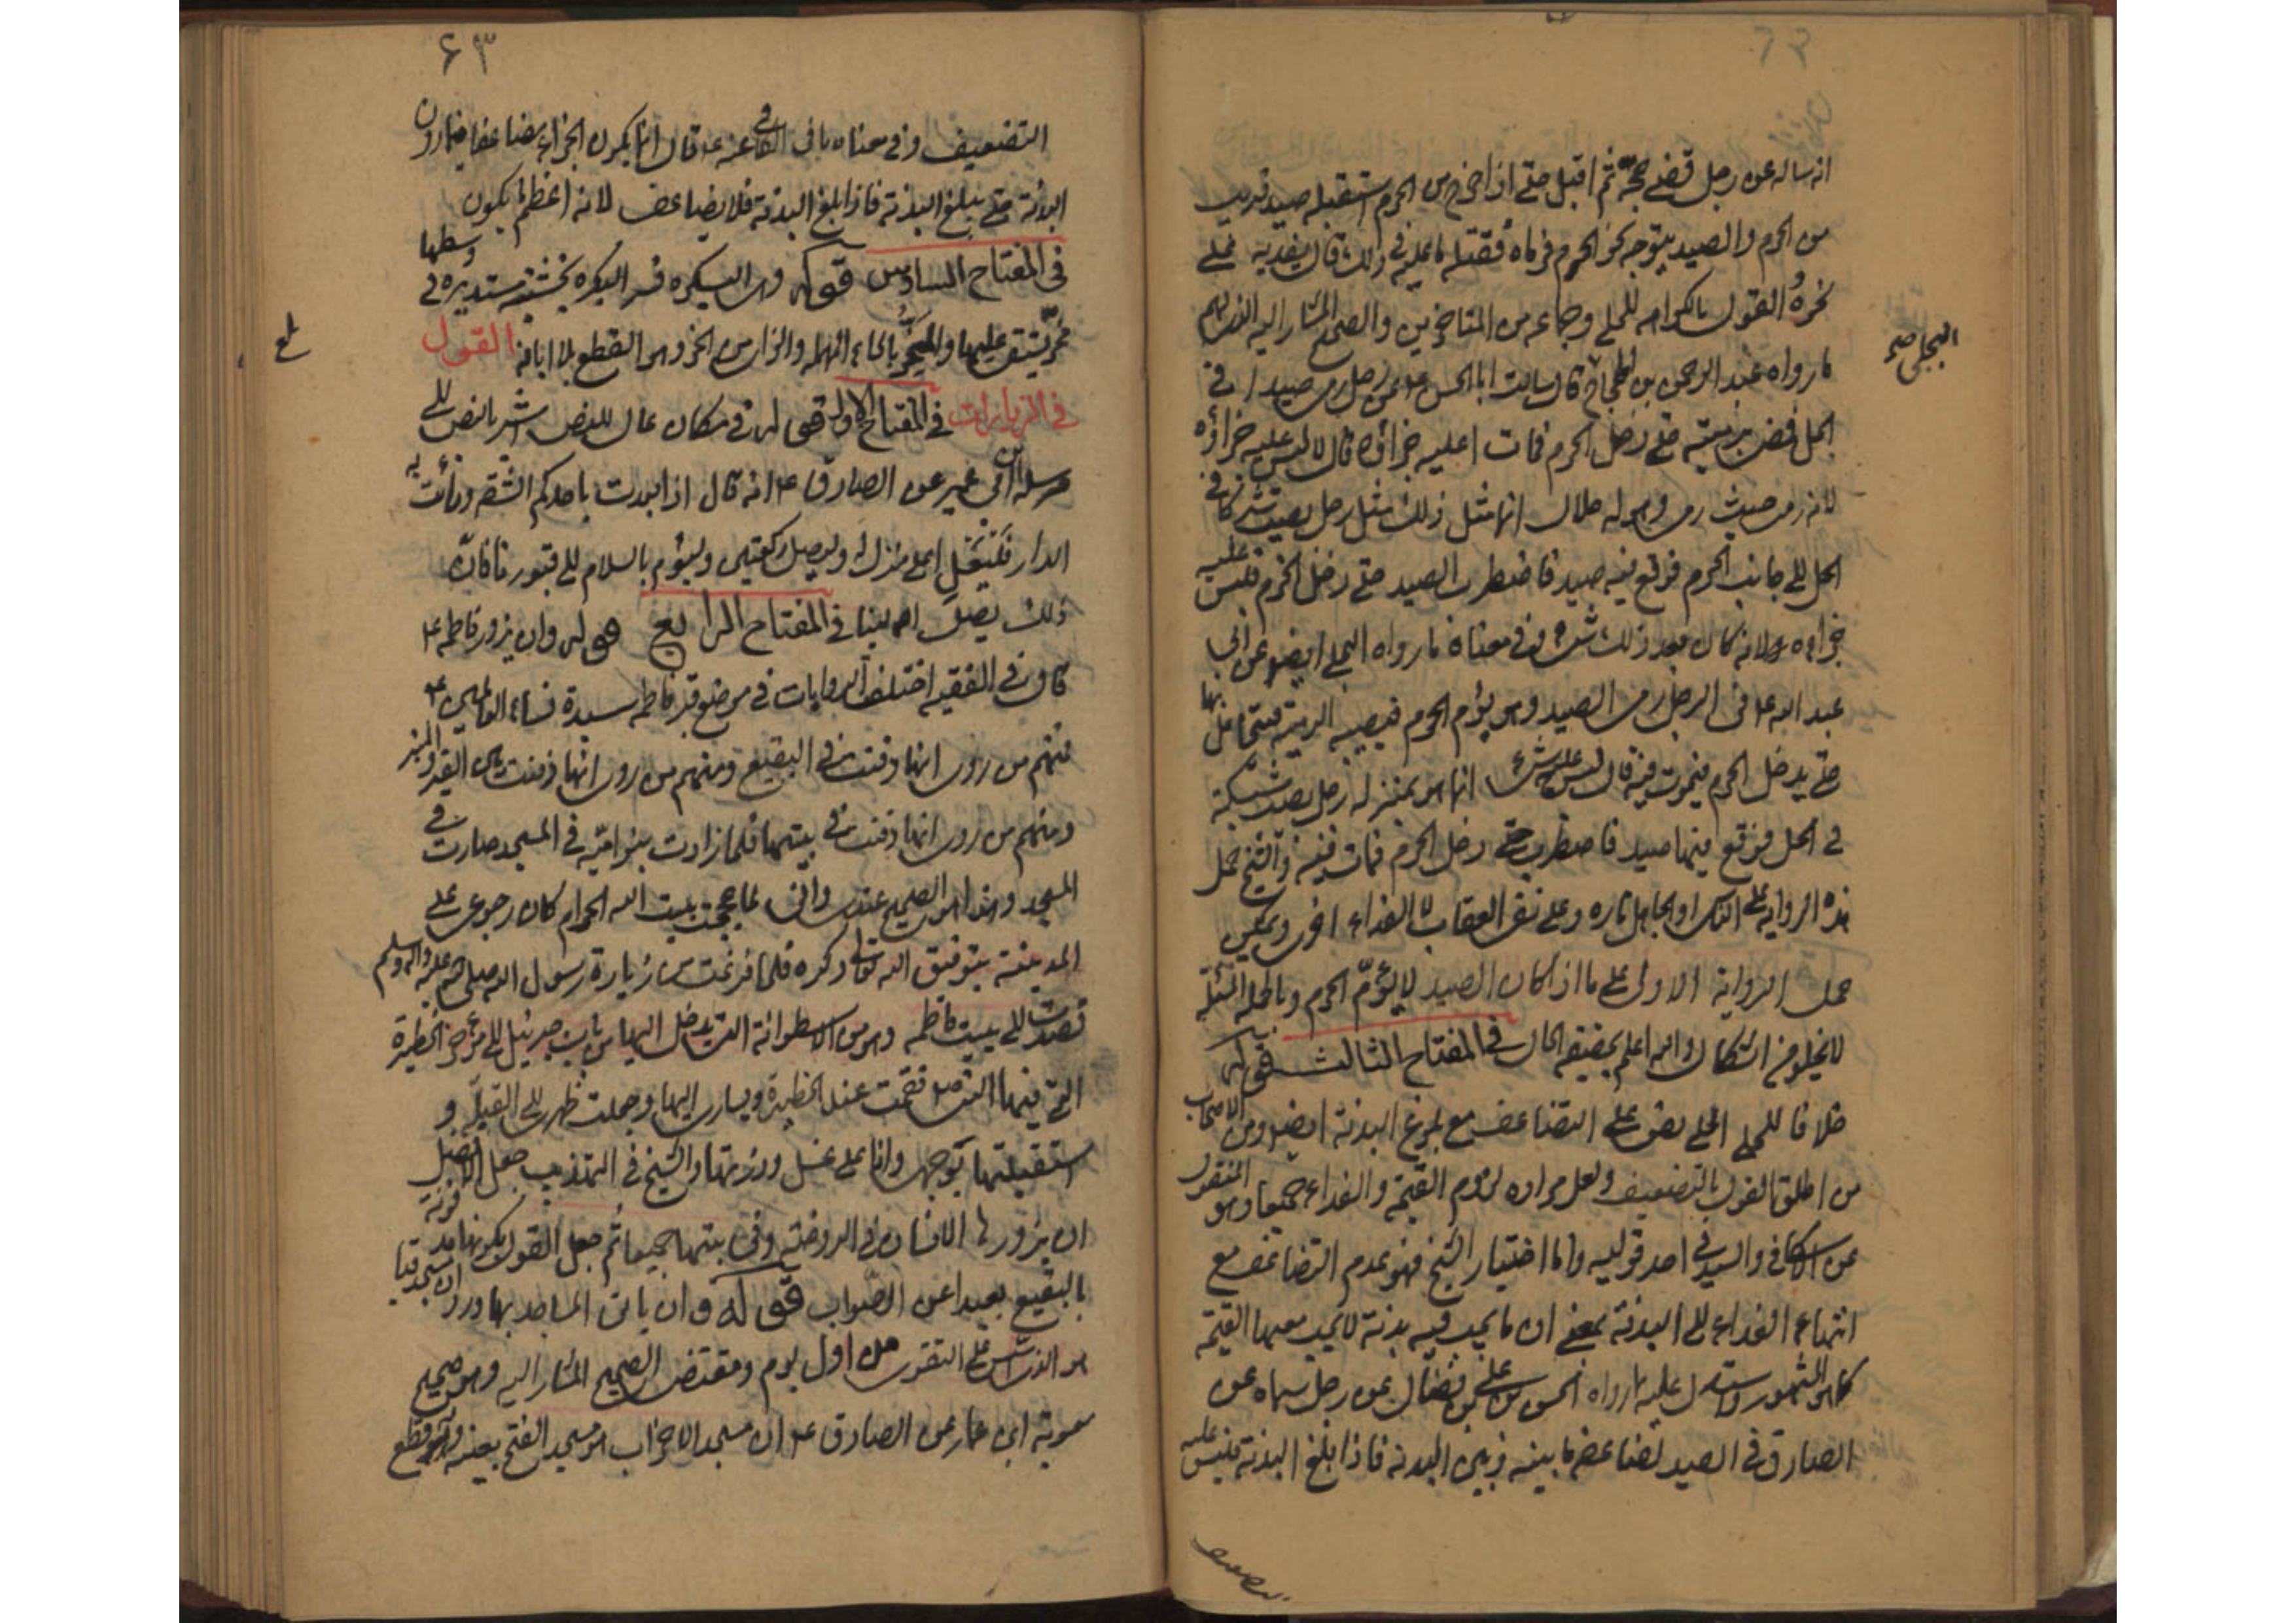 انه ساله عن رجل قضى حجّه ثم اقبل حتى اذا خرج من الحرم استقبله صيد قريب
من الحرم والصيد يتوجه نحو الحرم فرماه فقتله ما عليه في ذلك قال يفديه على
نحوه القول بالكراهه للحلي وجماعه من المتاخرين والصحيح المشار اليه
ما رواه عبد الرحمن بن الحجاج قال سالت ابا الحسن ع عن رجل رمى صيدا في
البجلي صح
الحل فمضى برميته حتى دخل الحرم فمات اعليه جزاؤه قال لا ليس عليه جزاؤه
لانه رمى حيث رمى وهو له حلال انما مثل ذلك مثل رجل نصب شركا في
الحل الى جانب الحرم فوقع فيه صيد فاضطرب الصيد حتى دخل الحرم فليس عليه
جزاوه لانه كان بعد ذلك شئ وفي معناه ما رواه البجلي ايضا عن ابي
عبد الله ع في الرجل رمى الصيد وهو يؤم الحرم فتصيبه الرمية فيتحامل بها
حتى يدخل الحرم فيموت فيه قال ليس عليه شئ انما هو بمنزله رجل نصب شبكة
في الحل فوقع فيها صيد فاضطرب حتى دخل الحرم فمات فيه والشيخ حمل
هذه الرواية على الناسي او الجاهل تاره وعلى نفي العقاب لا الفداء اخرى ويمكن
حمل الرواية الاولى على ما اذا كان الصيد لا يؤمّ الحرم وبالجمله المسئلة
لا يخلو من اشكال والله اعلم بحقيقه الحال في المفتاح الثالث قوله
خلافا للحلي الحلي نص على التضاعف مع بلوغ البدنة ايضا ومن الاصحاب
من اطلق القول بالتضعيف ولعل مراده لزوم القيمة والفداء جميعا وهو المنقول
عن الاسكافي والسيد في احد قوليه واما اختيار الشيخ فهو عدم التضاعف مع
انتهاء الفداء الى البدنة بمعنى ان ما يجب فيه بدنة لا يجب معها القيمة
كما هو المشهور واستدل عليه بما رواه الحسن بن علي بن فضال عن رجل سماه عن
الصادق في الصيد يضاعفه ما بينه وبين البدنه فاذا بلغ البدنة فليس عليه
التضعيف
۶۳
التضعيف وفي معناه ما في الكافي عنه ع قال انما يكون الجزاء مضاعفا فيما دون
البدنة حتى يبلغ البدنة فاذا بلغ البدنة فلا يضاعف لانه اعظم ما يكون
في المفتاح السادس قوله وهي البكره فسر البكره بخشبة مستديرة في وسطها
محز يستقى عليها والمحزّ بالحاء المهمله والزاء من الحز وهو القطع بلا ابانة القول
في الزيارات في المفتاح الاول قوله في مكان عال للنص اشير بالنص الى
مرسله ابن ابي عمير عن الصادق ع انه قال اذا بعدت باحدكم الشقه ونأت به
الدار فليعل اعلى منزله وليصل ركعتين وليؤم بالسلام الى قبورنا فان
ذلك يصل الينا في المفتاح الرابع قوله وان يزور فاطمه ع
قال في الفقيه اختلف الروايات في موضع قبر فاطمه سيدة نساء العالمين ع
فمنهم من روى انها دفنت في البقيع ومنهم من روى انها دفنت بين القبر والمنبر
ومنهم من روى انها دفنت في بيتها فلما زادت بنو اميّه في المسجد صارت في
المسجد وهذا هو الصحيح عندي واني لما حججت بيت الله الحرام كان رجوعي على
المدينة بتوفيق الله تعالى ذكره فلما فرغت من زيارة رسول الله صلى الله عليه واله وسلم
قصدت الى بيت فاطمه وهو من الاسطوانة التي يدخل اليها من باب جبرئيل الى مؤخر الحظيرة
التي فيها النبي ص فقمت عند الحظيرة ويساري اليها وجعلت ظهري الى القبلة و
استقبلتها بوجهي وانا على غسل وزرتها والشيخ في التهذيب جعل الافضل
ان يزورها الانسان في الروضة وفي بيتها جميعا ثم جعل القول بكونها مدفونة
بالبقيع بعيدا عن الصّواب قوله وان ياتي المساجد بها ورد ان مسجد قبا
هو الذي اسس على التقوى من اول يوم ومقتضى الصحيح المشار اليه وهو صحيح
معوية ابن عمار عن الصادق ع ان مسجد الاحزاب هو مسجد الفتح بعينه
بلغ